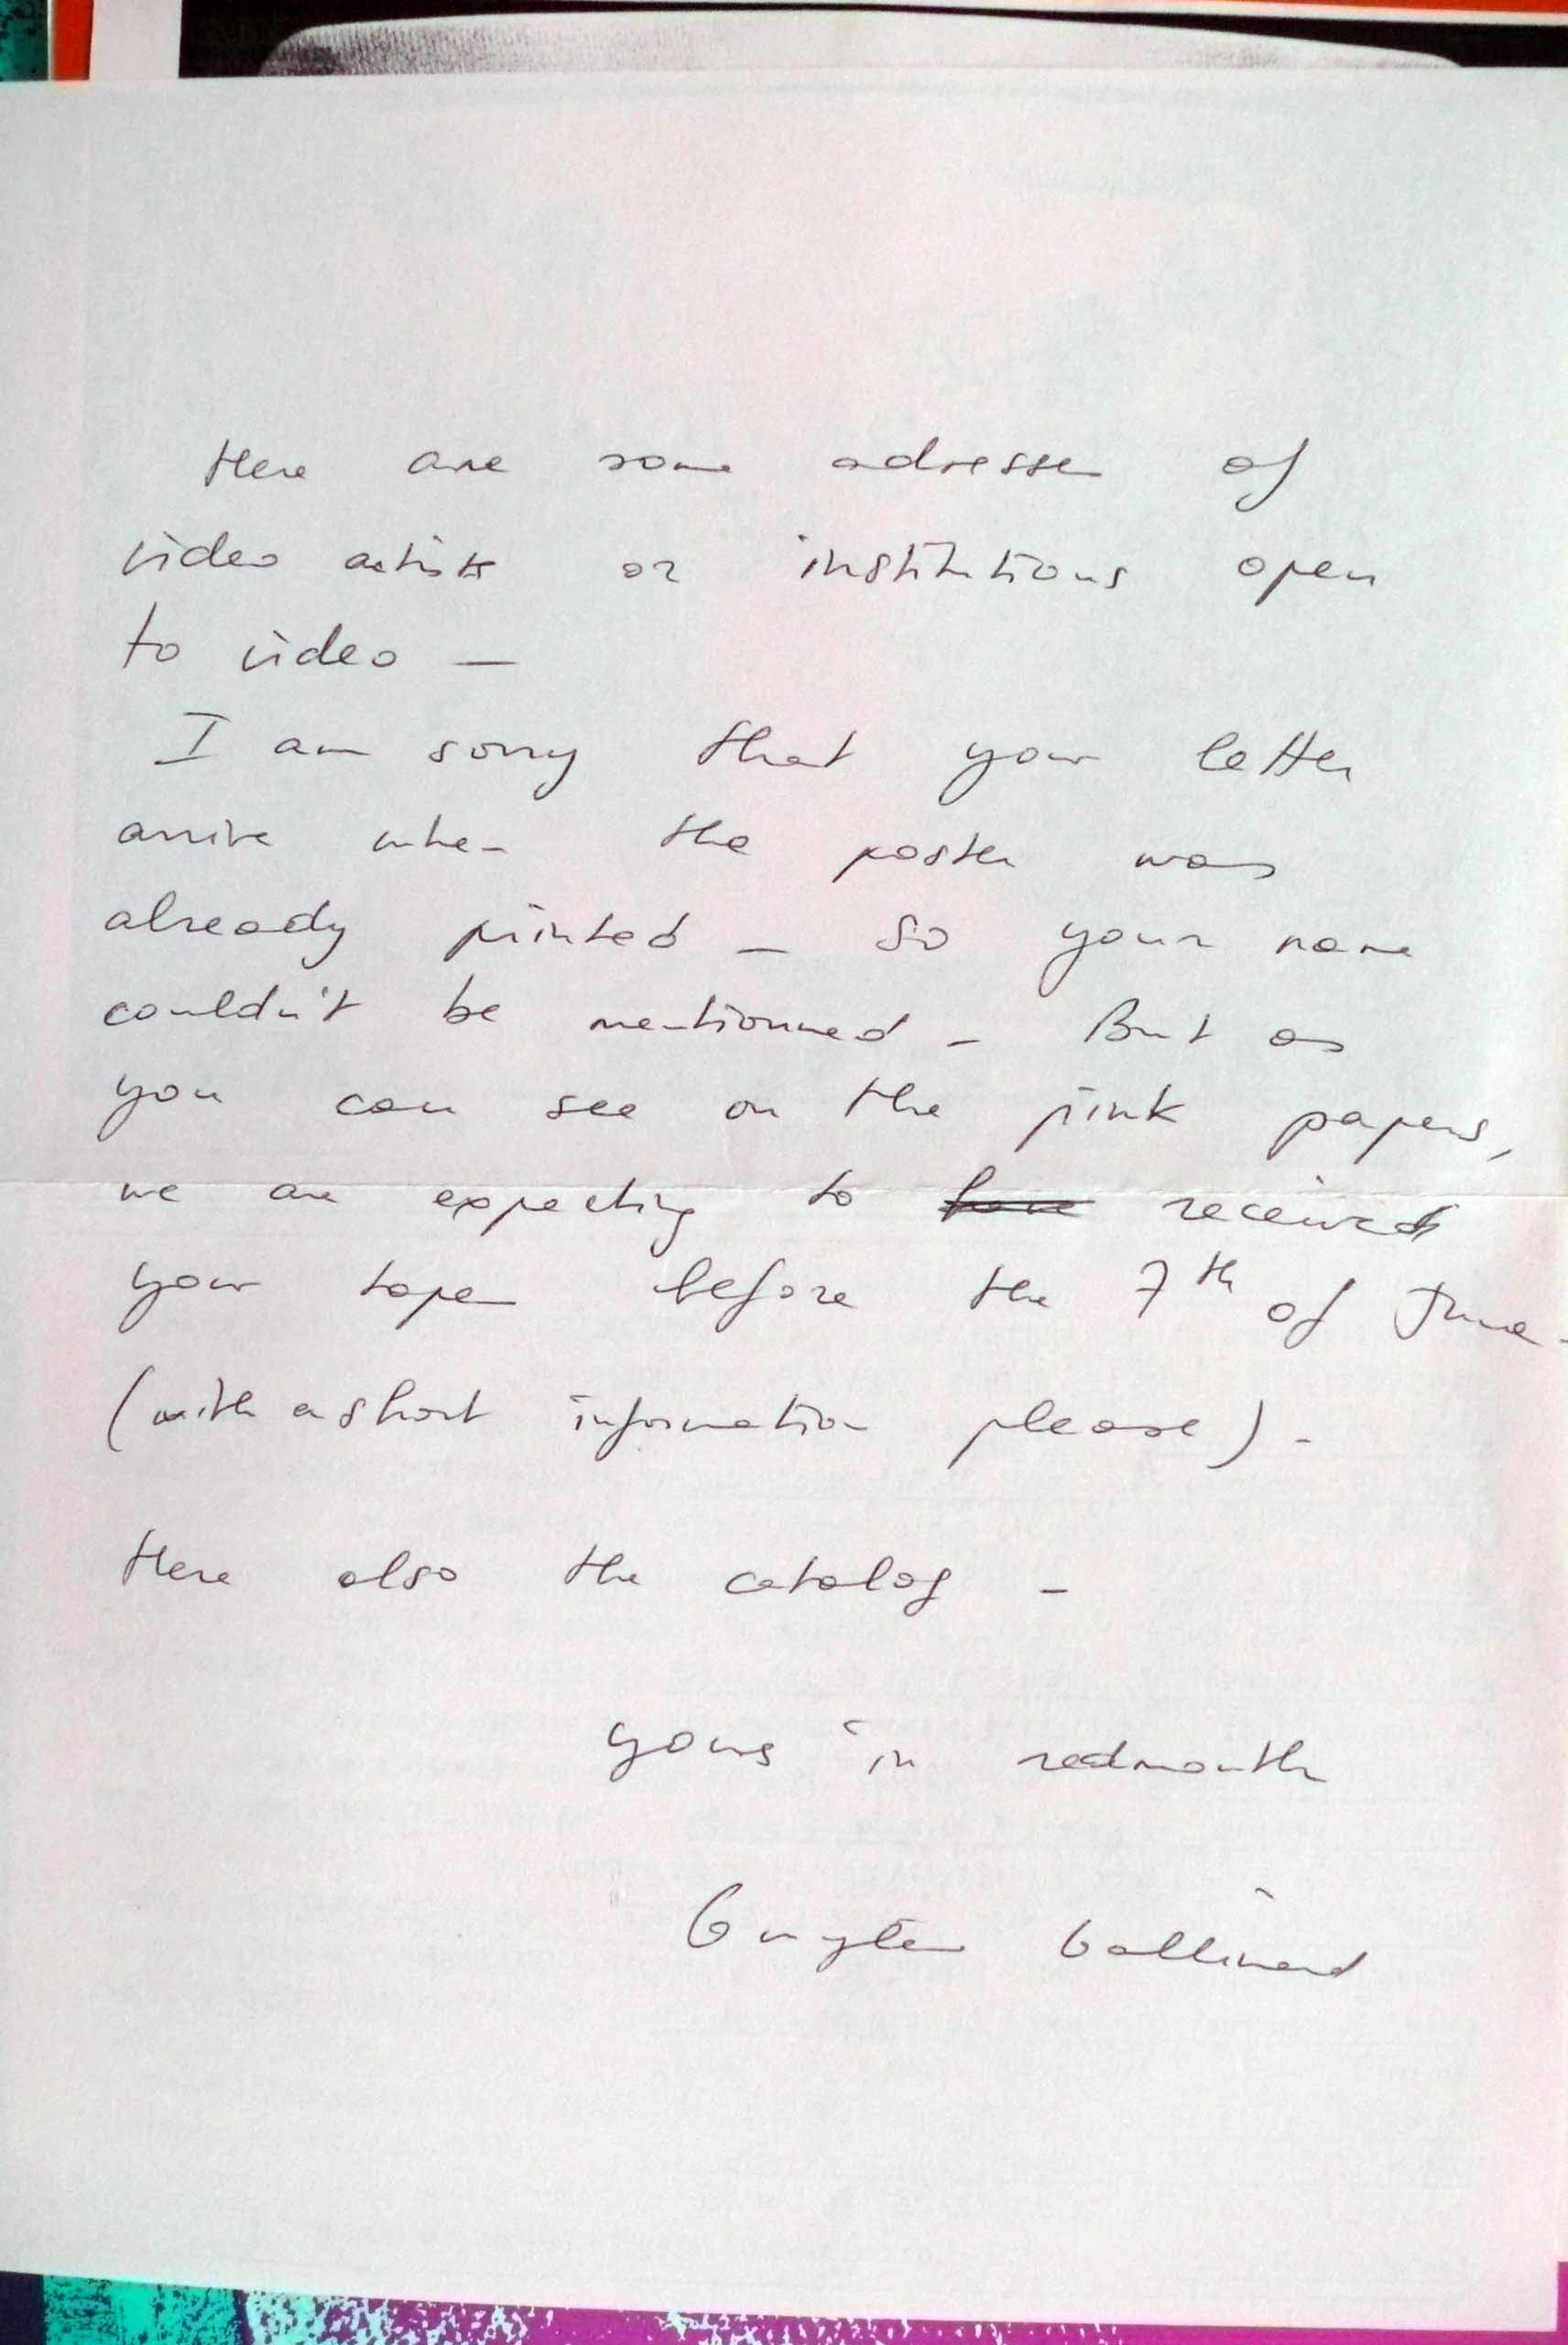 Here are some adresses of
video artists or institutions open
to video —
I am sorry that your letter
arrive when the poster was
already printed — so your name
couldn't be mentionned — But as
you can see on the pink papers,
we are expecting to have receive
your tapes before the 7th of June -
(with a short information please) -
Here also the catalog -
yours in redmouth